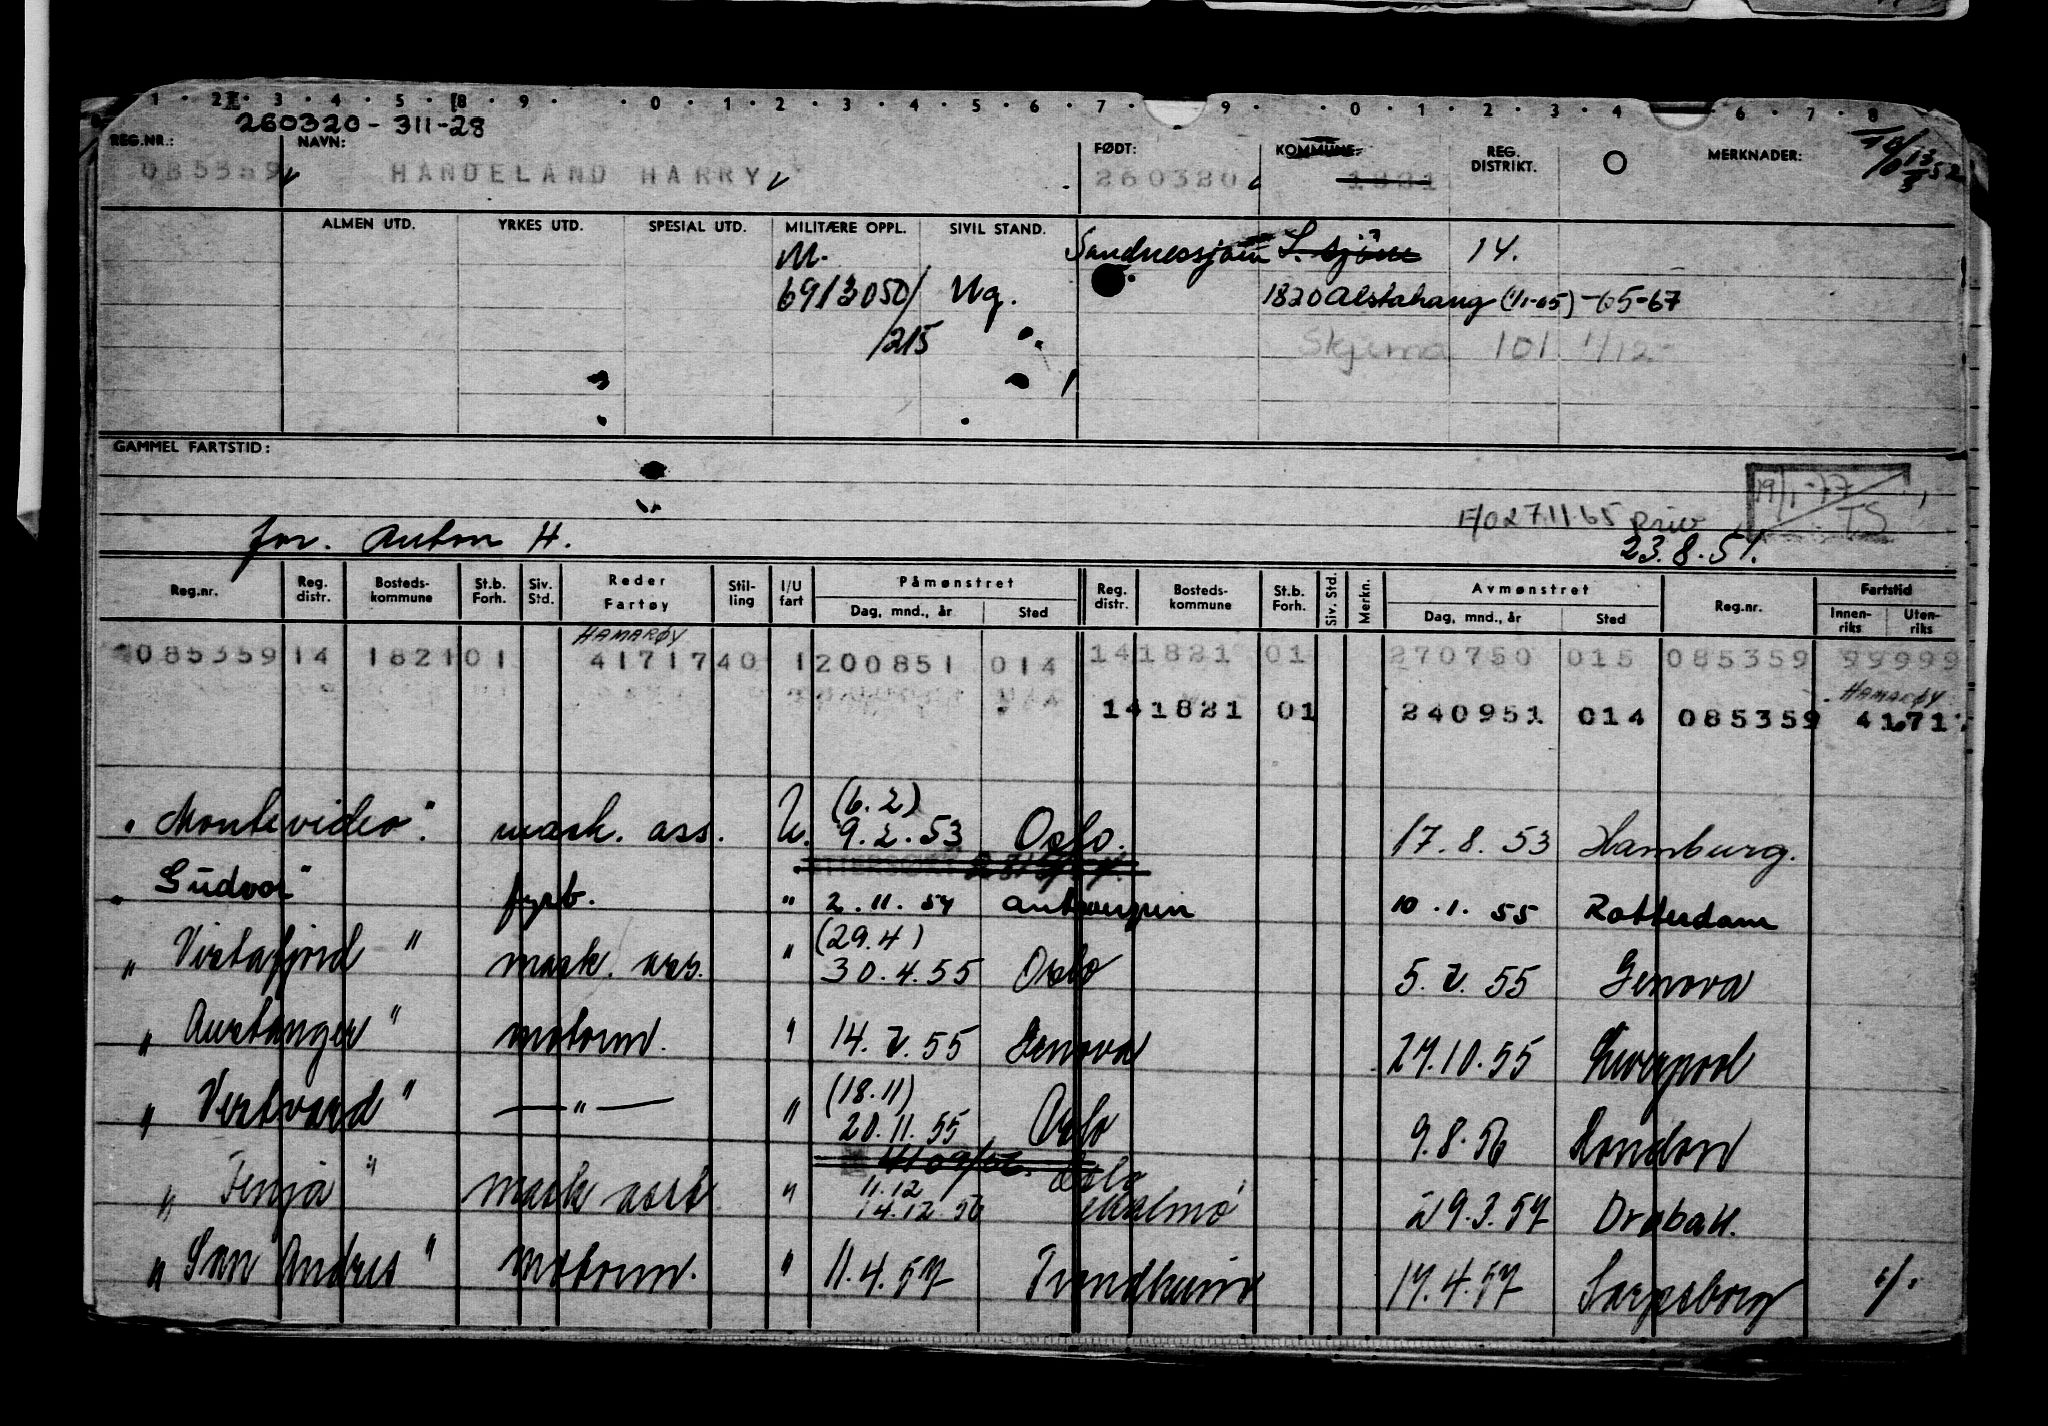 1 · 2 · 3 · 4 · 5 · 8 · 9 · · 0 · 1 · 2 · 3 · 4 · 5 · 6 · 7 · 9 · · 0 · 1 · 2 · 3 · 4 · 6 · 7 · 8
260320-311-28
REG.NR.: NAVN: FØDT: KOMMUNE: REG. DISTRIKT. MERKNADER:
085359 HANDELAND HARRY 260320 1821
ALMEN UTD. YRKES UTD. SPESIAL UTD. MILITÆRE OPPL. SIVIL STAND.
M. Sandnessjøen 14.
6913050/ Ug. 1820 Alstahaug (1/1-65) -65-67
215 Skjerna 101 1/12-
GAMMEL FARTSTID:
19/1-77
TS
F/027.11.65
for. Anton H. 23.8.51.
Reg.nr. Reg. distr. Bosteds-kommune St.b. Forh. Siv. Std. Reder Fartøy Stil-ling I/U fart Påmønstret Reg. distr. Bosteds-kommune St.b. Forh. Siv. Std. Merkn. Avmønstret Reg.nr. Fartstid
Dag, mnd., år Sted Dag, mnd., år Sted Innen-riks Uten-riks
HAMARØY
085359 14 1821 01 41717 40 1 200851 014 14 1821 01 270750 015 085359 99999
HAMARØY
14 1821 01 240951 014 085359 41717
(6.2)
"Montevideo". mask. ass. U. 9.2.53 Oslo. 17.8.53 Hamburg.
"Gudvor" fyrb. " 2.11.54 Antwerpen 10.1.55 Rotterdam
(29.4)
"Vistafjord" mask. ass. " 30.4.55 Oslo 5.7.55 Genova
"Austanger" motorm. " 14.7.55 Genova 27.10.55 Liverpool
(18.11)
"Vestvard" — " — " 20.11.55 Oslo 9.8.56 London
11.12 Oslo
"Fenja" mask asst. " 14.12.56 Malmø 29.3.57 Drøbak.
"San Andres" motorm. " 11.4.57 Trondheim 17.4.57 Sarpsborg ./.